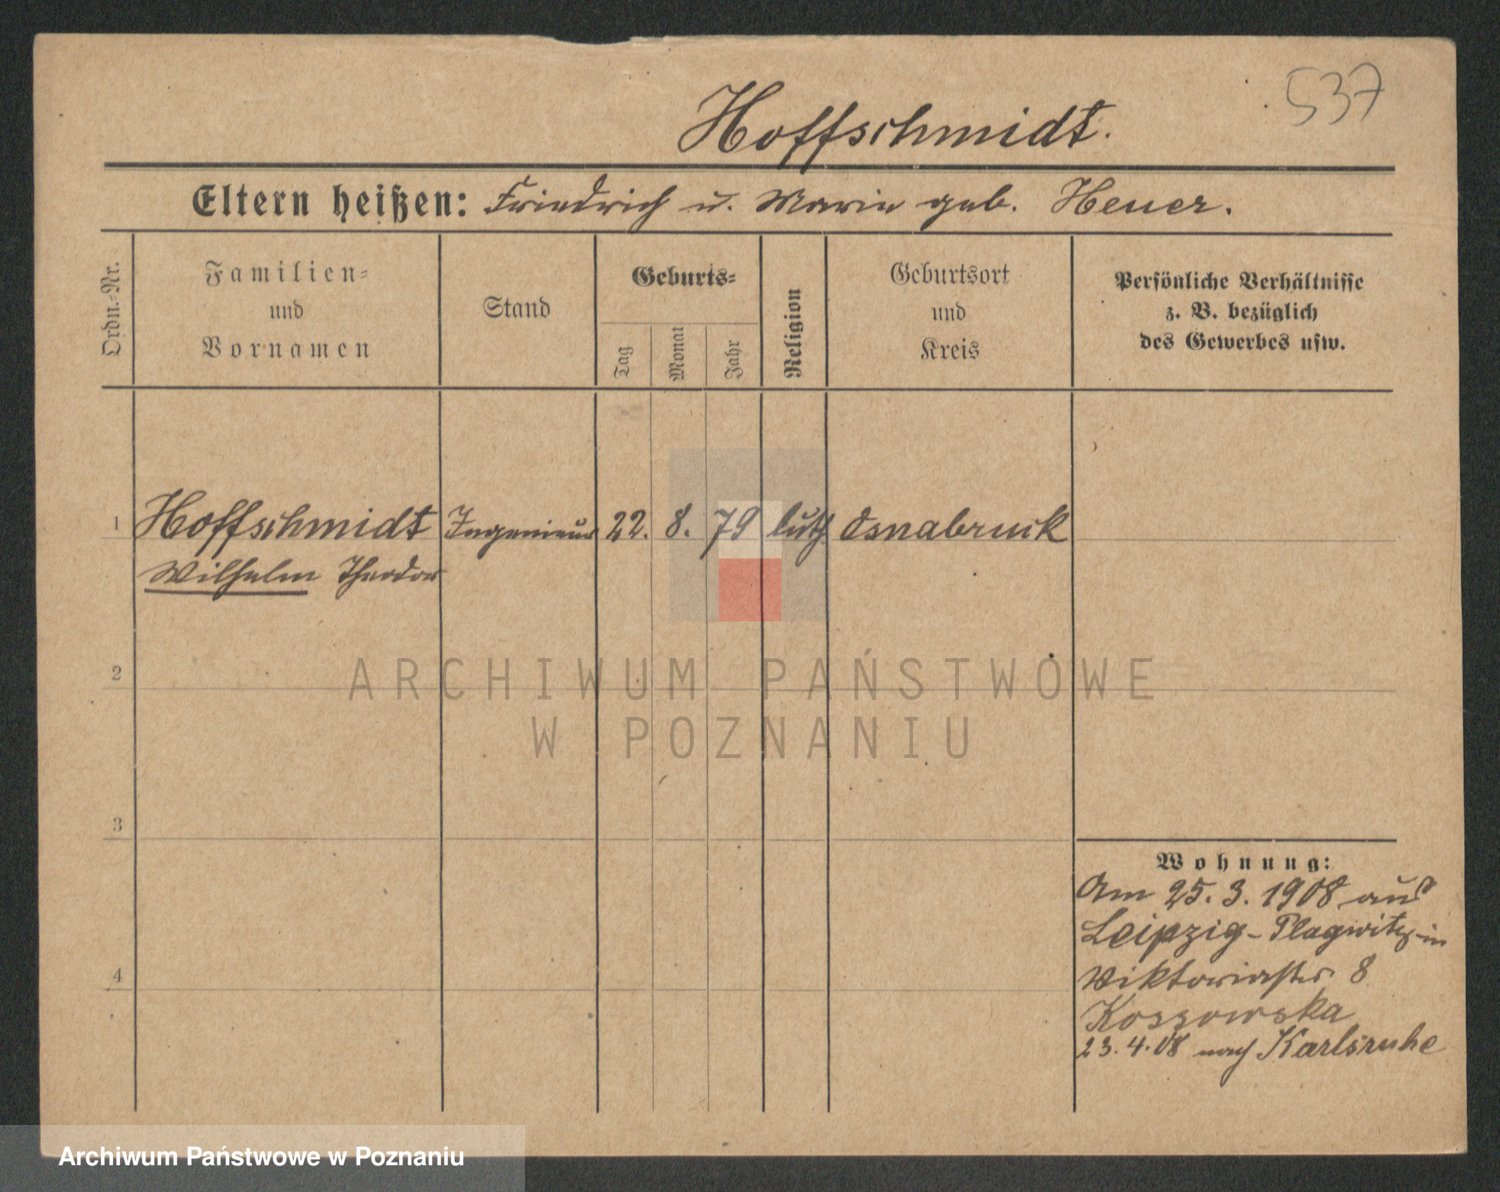 537
Hoffschmidt.
Eltern heißen: Friedrich u. Marie geb. Heuer.
Ordn.-Nr.
Familien-
und
Vornamen
Stand
Geburts-
Tag
Monat
Jahr
Religion
Geburtsort
und
Kreis
Persönliche Verhältnisse
z. B. bezüglich
des Gewerbes usw.
1 Hoffschmidt Ingenieur 22. 8. 79 luth Osnabruck
Wilhelm Theodor
2
ARCHIWUM PAŃSTWOWE
W POZNANIU
3
Wohnung:
Am 25. 3. 1908 aus
Leipzig-Plagwitz in
4
Viktoriastr. 8
Kossowska
23.4.08 nach Karlsruhe
Archiwum Państwowe w Poznaniu